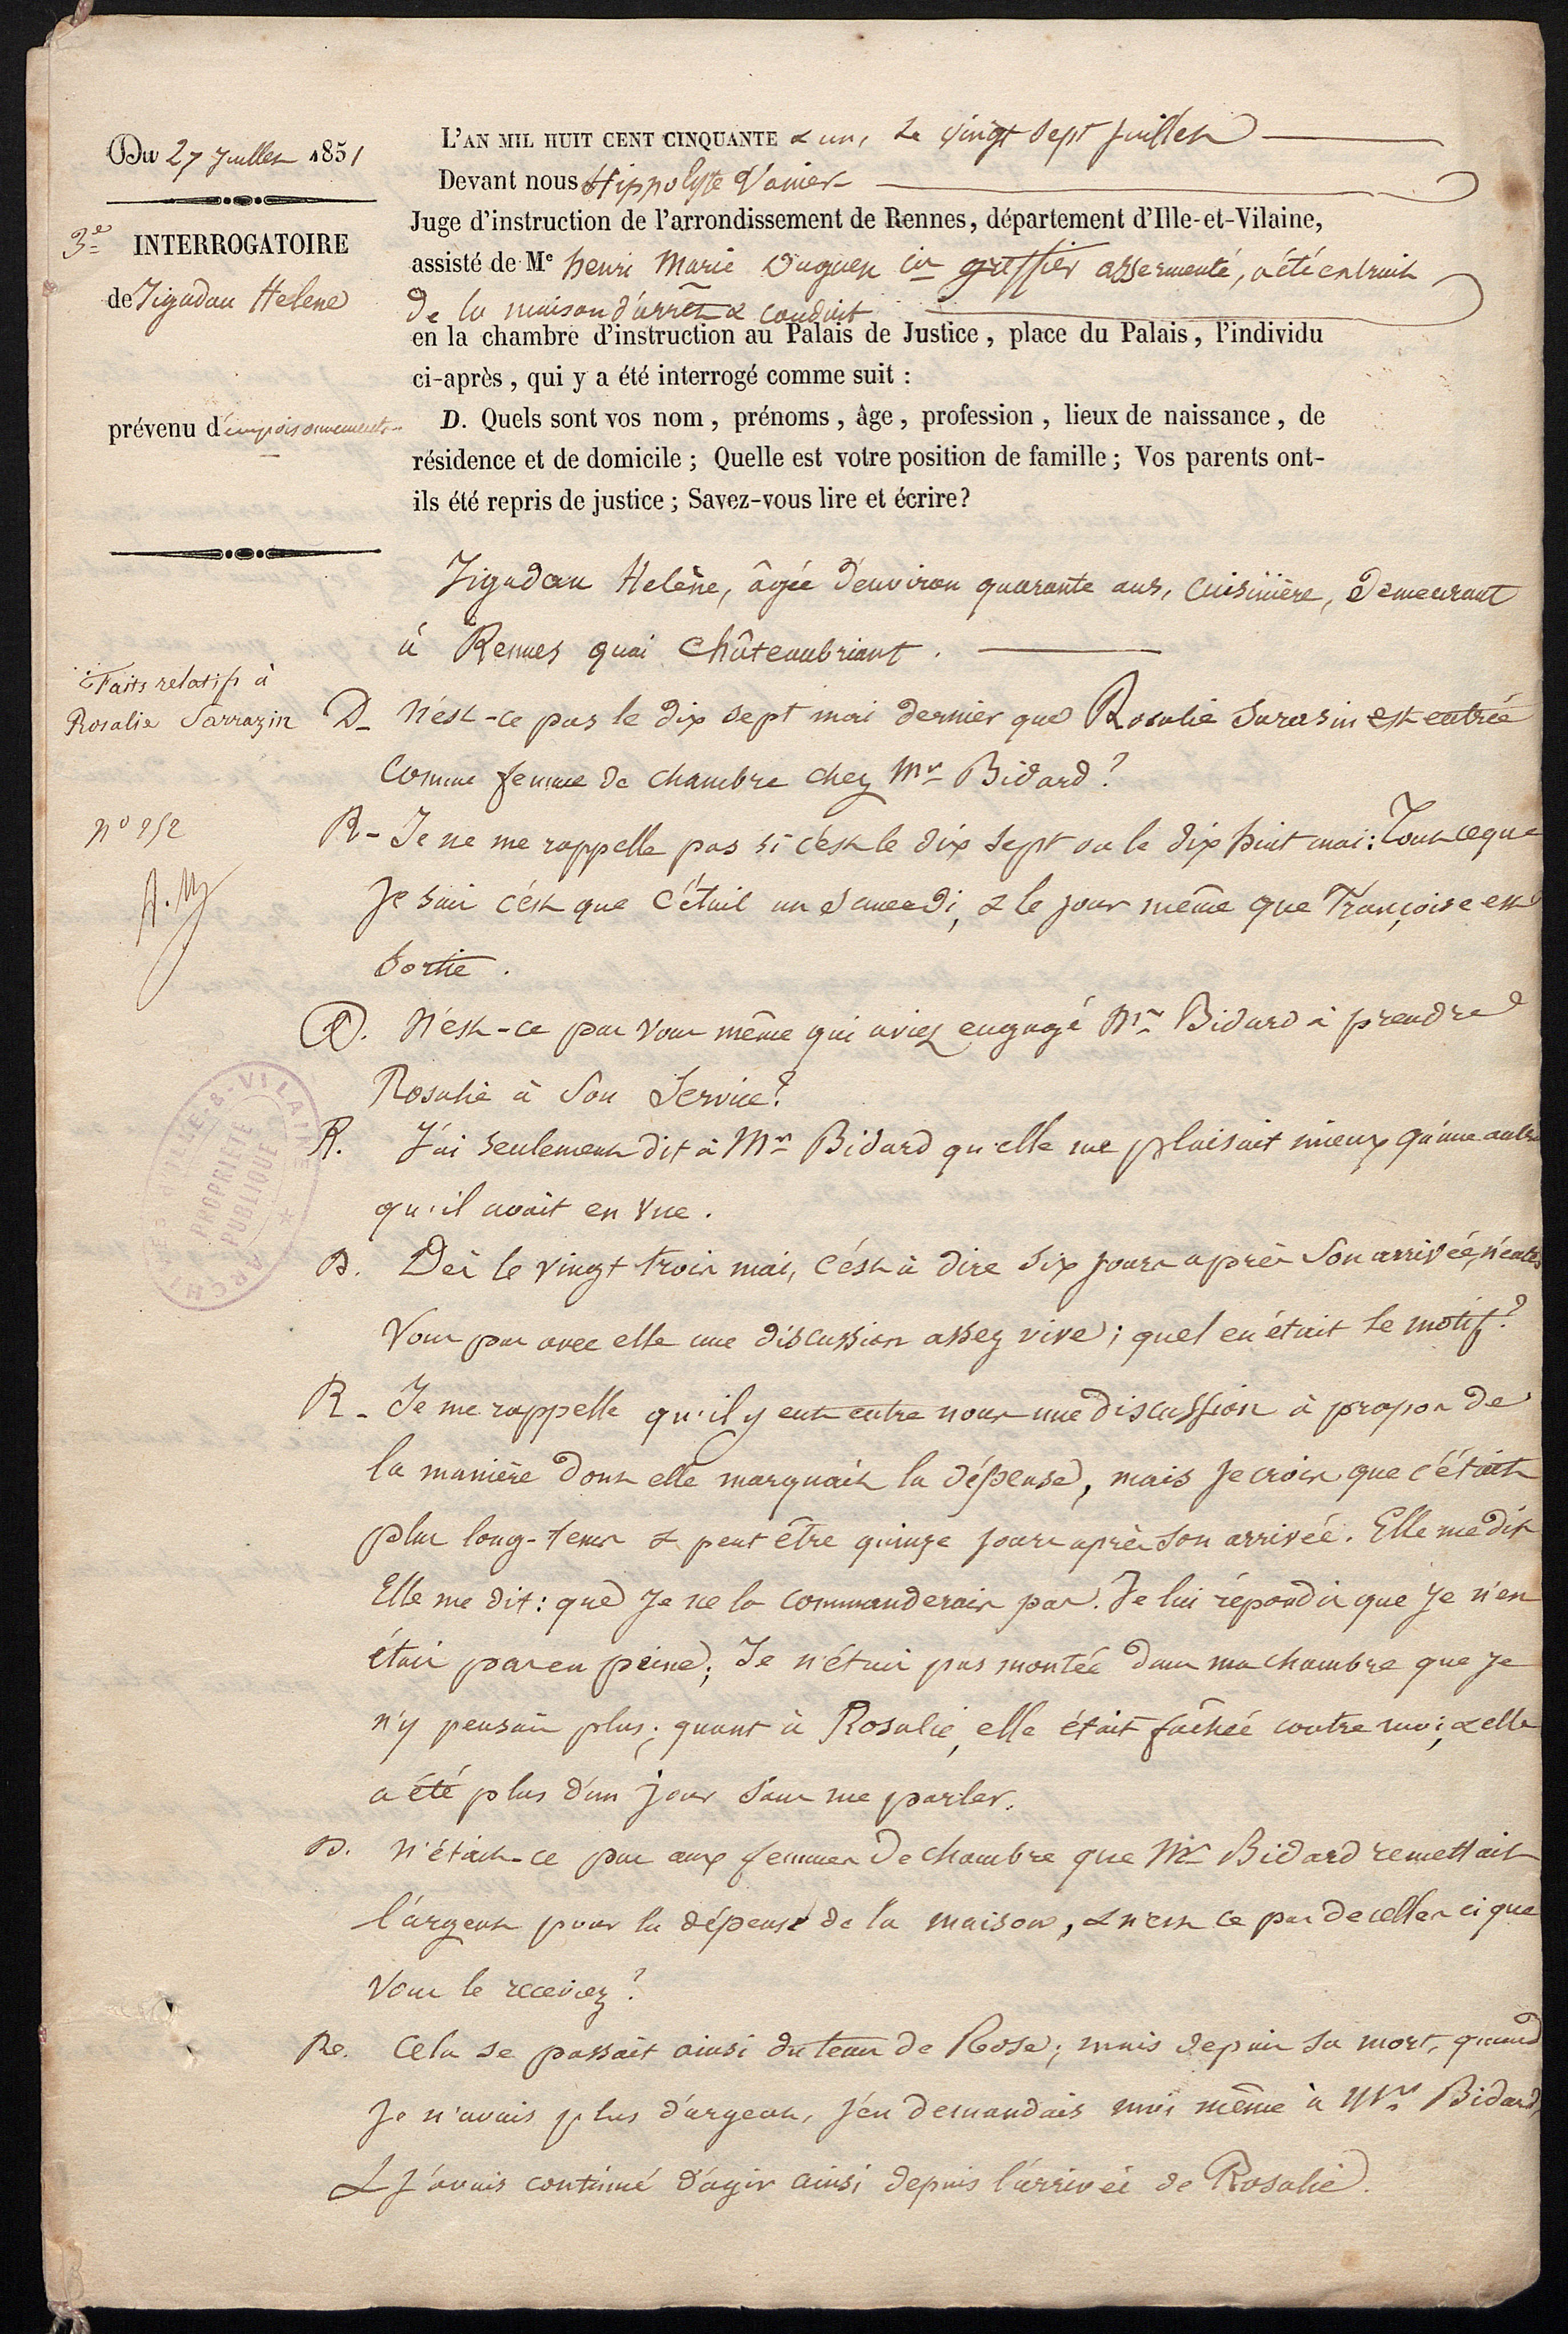 Du 27 Juillet 1851
3e INTERROGATOIRE
de Jigadau Helene
prévenu d'empoisonnement
L'AN MIL HUIT CENT CINQUANTE & un, Le vingt sept Juillet
Devant nous Hippolyte Vanier
Juge d'instruction de l'arrondissement de Rennes, département d'Ille-et-Vilaine,
assisté de Me henri Marie greffier assermenté, a été extrait
De la maison d'arrêt & conduit
en la chambre d'instruction au Palais de Justice, place du Palais, l'individu
ci-après, qui y a été interrogé comme suit :
D. Quels sont vos nom, prénoms, âge, profession, lieux de naissance, de
résidence et de domicile ; Quelle est votre position de famille ; Vos parents ont-
ils été repris de justice ; Savez-vous lire et écrire?
Jigadau Helène, âgée d'environ quarante ans, Cuisinière, Demeurant
à Rennes quai Châteaubriant.
Faits relatifs à
Rosalie Sarrazin
D_ N'est-ce pas le dix sept mai dernier que Rosalie Sarasin est entrée
Comme femme de chambre chez Mr Bidard?
R- Je ne me rappelle pas si c'est le dix sept ou le dix huit mai : Tout ce que
Je sais c'est que c'était un Samedi, & le jour même que Françoise est
Sortie.
D. N'est-ce pas vous même qui aviez engagé Mr Bidard à prendre
Rosalie à Son Service?
R. J'ai Seulement dit à Mr Bidard qu'elle me plaisait mieux qu'une autre
qu'il avait en vue.
D. Dès le vingt trois mai, c'est à dire Six jours après Son arrivée, n'eutes
Vous pas avec elle une discussion assez vive; quel en était le motif?
R_ Je me rappelle qu'il y eut entre nous une discussion à propos de
la manière dont elle marquait la dépense, mais Je crois que c'était
plus long-tems & peut être quinze jours après Son arrivée. Elle me dit
Elle me dit : que Je ne la Commanderais pas. Je lui répondis que Je n'en
étais pas en peine; Je n'étais pas montée dans ma chambre que Je
n'y pensais plus; quant à Rosalie, elle était fâchée contre moi, & elle
a été plus d'un jour Sans me parler.
D. N'était-ce pas aux femmes de chambre que Mr Bidard remettait
l'argent pour la dépense de la maison, & n'est ce pas de celles ci que
Vous le receviez?
Re. Cela se passait ainsi du tems de Rose; mais depuis sa mort, quand
Je n'avais plus d'argent, j'en demandais moi même à Mr Bidard,
& J'avais continué d'agir ainsi depuis l'arrivée de Rosalie.
No 252
ARCHIVES D'ILLE-&-VILAINE
PROPRIÉTÉ
PUBLIQUE